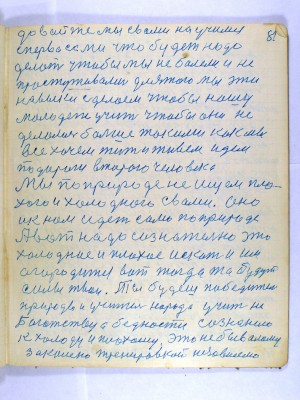 81
довайте мы своми научимся
сперва сами что будет надо
делать чтобы мы не болели и не
простуживались для этого мы эти
навыки сделаем чтобы нашу
молодежь учить чтобы они не
делались больше такими как мы
все хочем жить и живем идем
по дороги второго человека
Мы по природе не ищем пло-
хого и холодного своми. Оно
ик нам идет само по природе
А вот надо сознательно это
холодное и плохое искать и им
огородитись вот тогда та будут
силы твои. Ты будеш победитель
природы и учитель народа учить не
богатству а бедности сознанию
к холоду и плохому. Это небывалому
закалено тренировкой независимо